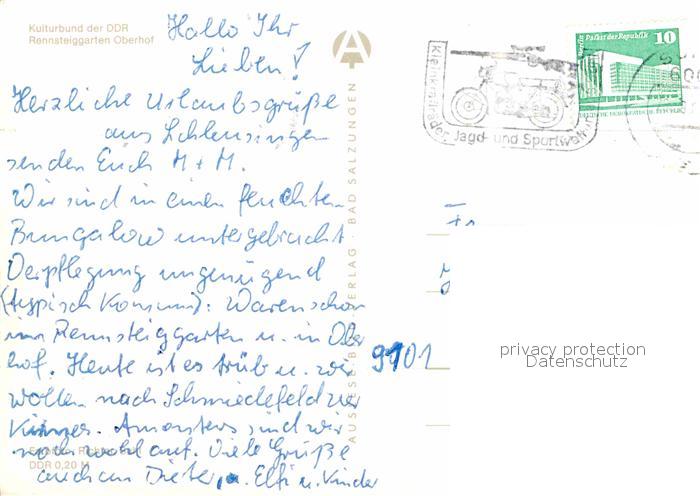 Kulturbund der DDR
Rennsteiggarten Oberhof
Hallo Ihr
Lieben!
Herzliche Urlaubsgrüße
aus Schleusingen
senden Euch M + M.
Wir sind in einen feuchten
Bungalow untergebracht
Verpflegung ungenügend
(typisch Konsum). Waren schon
im Rennsteiggarten u. in Ober
hof. Heute ist es trüb u. wir
wollen nach Schmiedefeld
sind wir
noch wohl auf. Viele Grüße
auch an Dieter, u. Elfi u. Kinder
DDR 0,20 M
A
VERLAG BAD SALZUNGEN
Kleinkrafträder, Jagd- und Sportwaffen
Palast der Republik 10
9101
privacy protection
Datenschutz